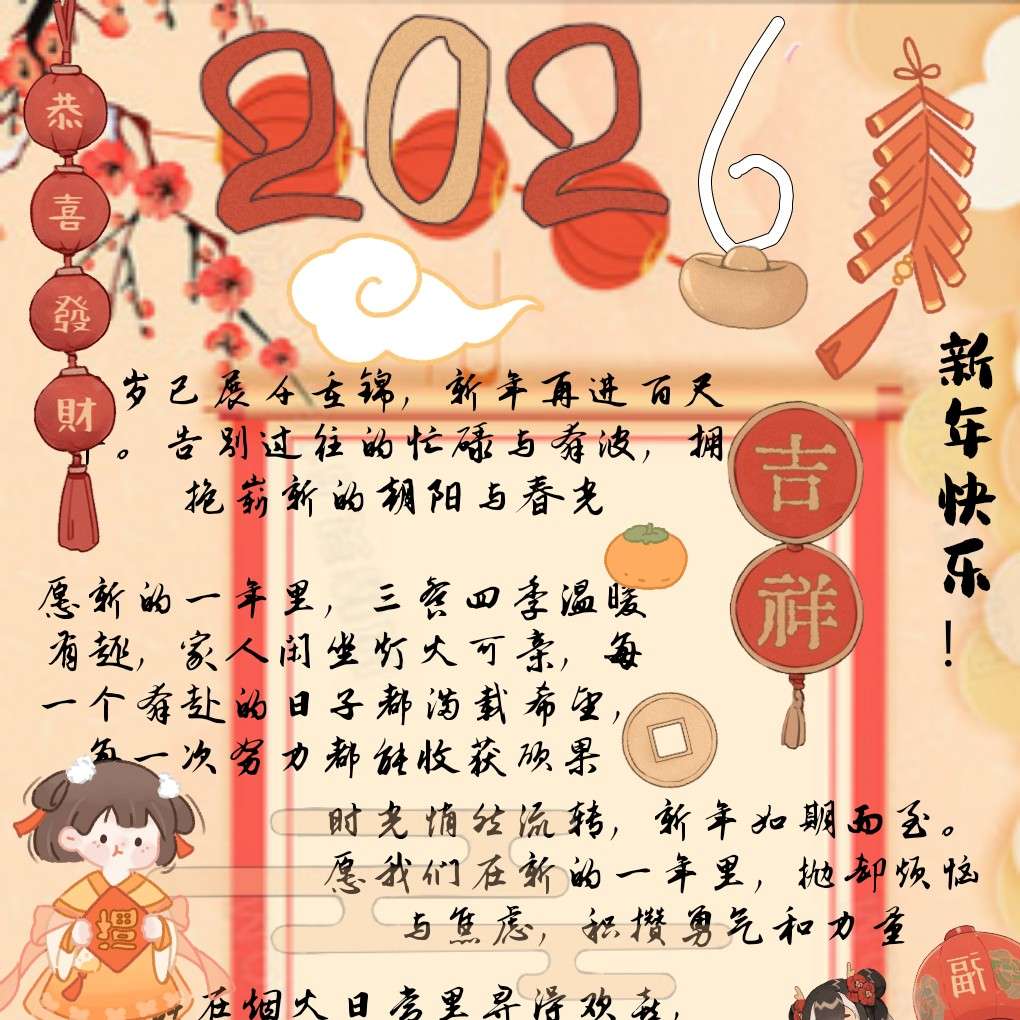 2026
恭喜發財
新年快乐!
岁已展千重锦,新年再进百尺
。告别过往的忙碌与奔波,拥
抱崭新的朝阳与春光
吉祥
愿新的一年里,三餐四季温暖
有趣,家人闲坐灯火可亲,每
一个奔赴的日子都满载希望,
每一次努力都能收获硕果
时光悄然流转,新年如期而至。
愿我们在新的一年里,抛却烦恼
与焦虑,积攒勇气和力量
在烟火日常里寻得欢喜,
福